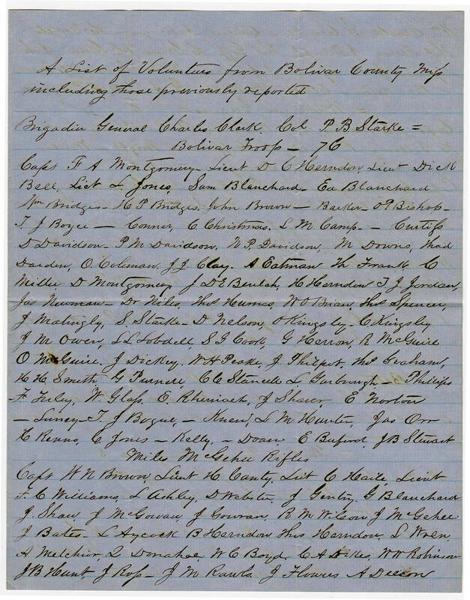 A List of Volunteers from Bolivar County Miss
including those previously reported
Brigadier General Charles Clark, Col P B Starke =
Bolivar Troop — 76
Capt F A Montgomery Lieut D C Herndon, Lieut Dick
Bell, Lieut L Jones, Sam Blanchard Ed Blanchard
Wm Bridges — H P Bridges, John Brown — Barker — Bishop
T J Boyce — Conner, C Christmas, L M Camp — Curtiss
D Davidson — P M Davidson, N P Davidson, M Downs, Thad
Darden, O Coleman, J J Clay. A Eatman Th Frank C
Miller D Montgomery J De Beulah, H Herndon T J Jordan,
Jas Newman — Dr Niles, Thos Humes, W D Brown Thos Spencer,
J Mattingly, S Starke — D Nelson, Kingsby — C Kingsley
J M Owen, S L Lobdell S J Cook, G Herron, R McGuire
O McGuire J Dickey, W H Peake, J Philpot, Thos Graham,
H H Smith, G Farnell C C Stenette L Yarbrough — Phillips
F Farley, W Glass, E Rheinach, J Shaser, E Norton
— Surrey T J Bogue, — Knew, L M Hunter, Jas Orr
H Kenno, C Jones — Kelly, — Doan E Buford, J B Stewart
Miles McGehee Rifles
Capt W N Brown, Lieut H Canty, Lieut C Haile, Lieut
F C Williams, L Ashley, D Webster, J Gentry, G Blanchard
J Shaw, J McGowan, J Gowran, R M Wilson J McGehee
J Bates — L Aycock B Herndon Thos Herndon, L Wren,
A Melchior L Donahoe, W C Boyd, C A Dikes, W W Robinson
J B Hunt, J Ross — J M Rawls J Flowers A Deeson